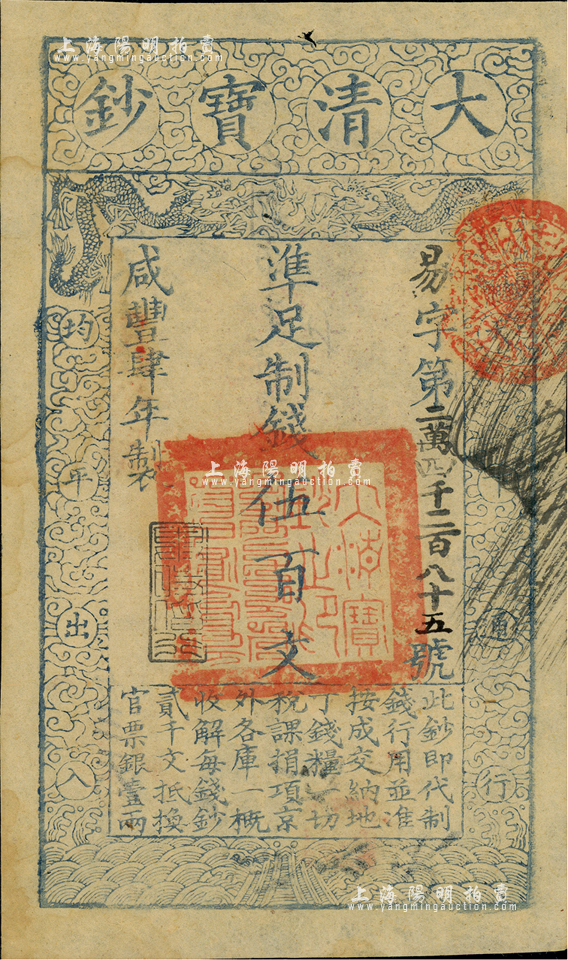 上海陽明拍賣
www.yangmingauction.com
大清寶鈔
易字第二萬四千二百八十五號
準足制錢伍百文
咸豐肆年製
均平出入
行
此鈔即代制
錢行用並準
按成交納地
丁錢糧一切
稅課捐項京
外各庫一概
收解每錢鈔
貳千文抵換
官票銀壹兩
上海陽明拍賣
www.yangmingauction.com
上海陽明拍賣
www.yangmingauction.com